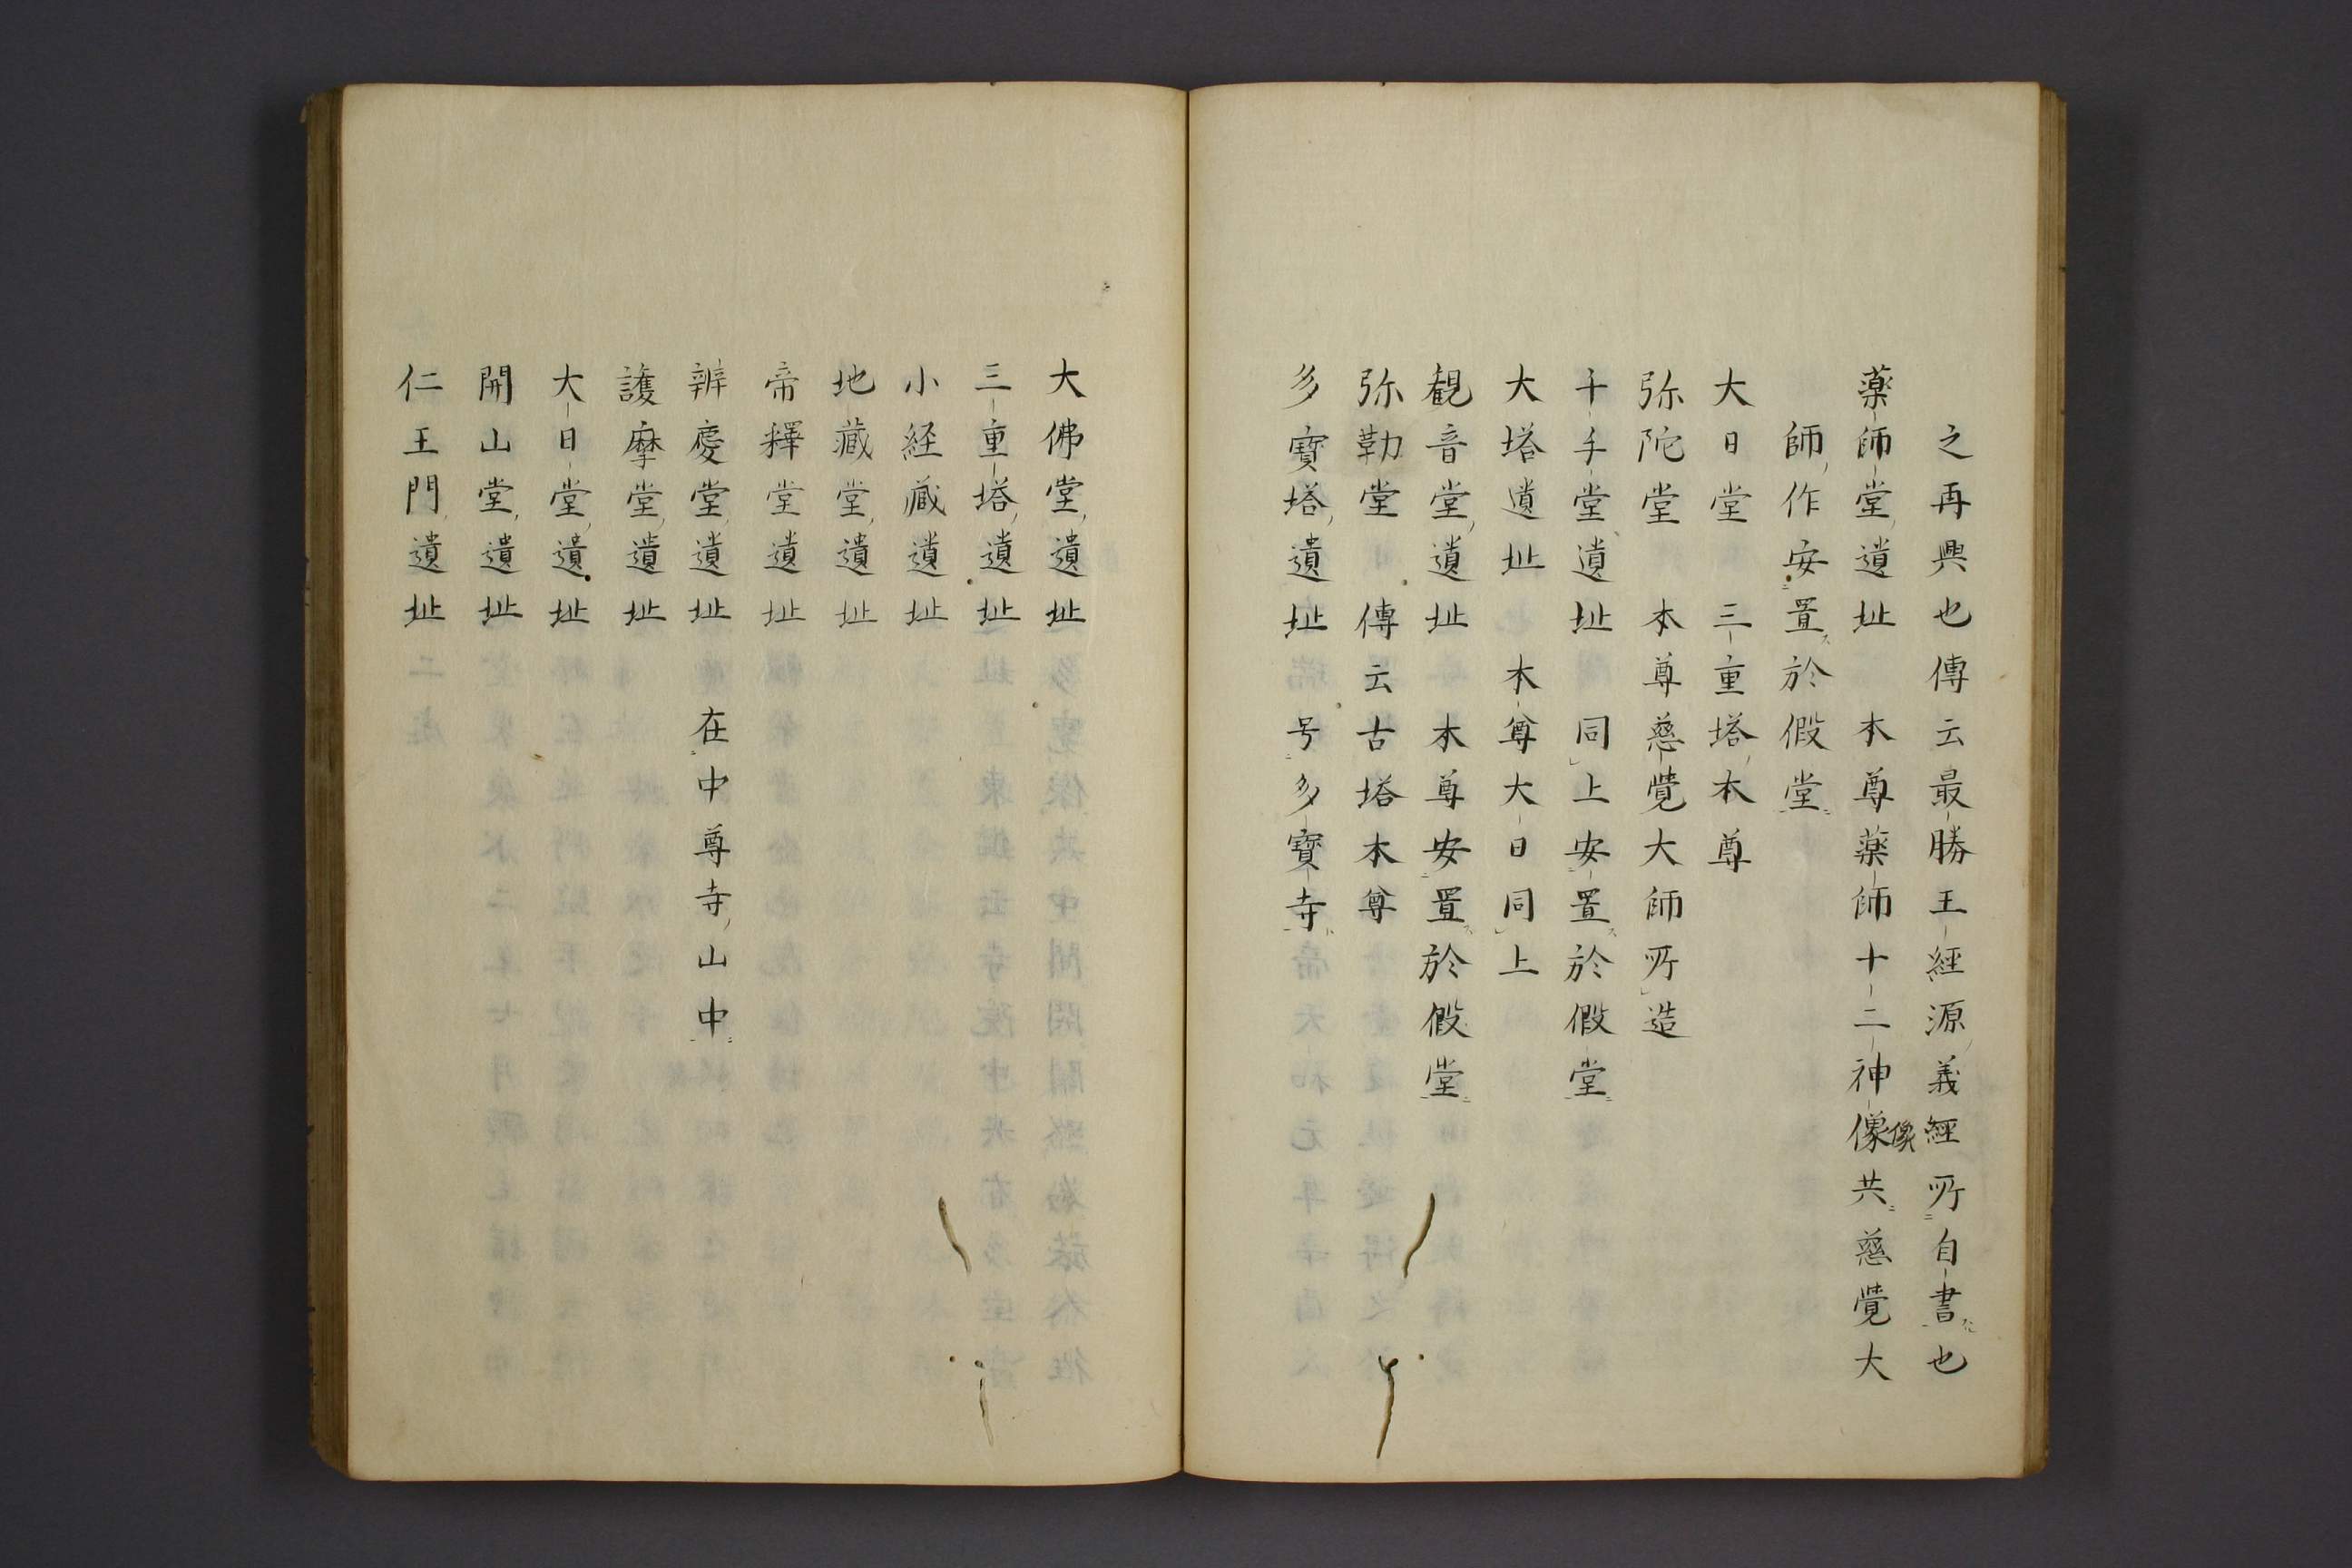 之再興也傳云最勝王經源義經所自書也
薬師堂遺址　本尊薬師十二神像共慈覺大
像
師作安置於假堂
大日堂　三重塔本尊
弥陀堂　本尊慈覺大師所造
千手堂遺址　同上安置於假堂
大塔遺址　本尊大日同上
観音堂遺址　本尊安置於假堂
弥勒堂　傳云古塔本尊
多寶塔遺址　号多寶寺
大佛堂遺址
三重塔遺址
小経藏遺址
地藏堂遺址
帝釋堂遺址
辨慶堂遺址　在中尊寺山中
護摩堂遺址
大日堂遺址
開山堂遺址
仁王門遺址